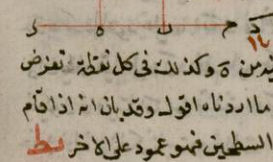 ى ه ں حـ د
يد من ة وكذلك فى كل نقطة تفرض
ما اردناه اقول وقد بان انه اذا قام
السطحين فهو عمود على الاخر